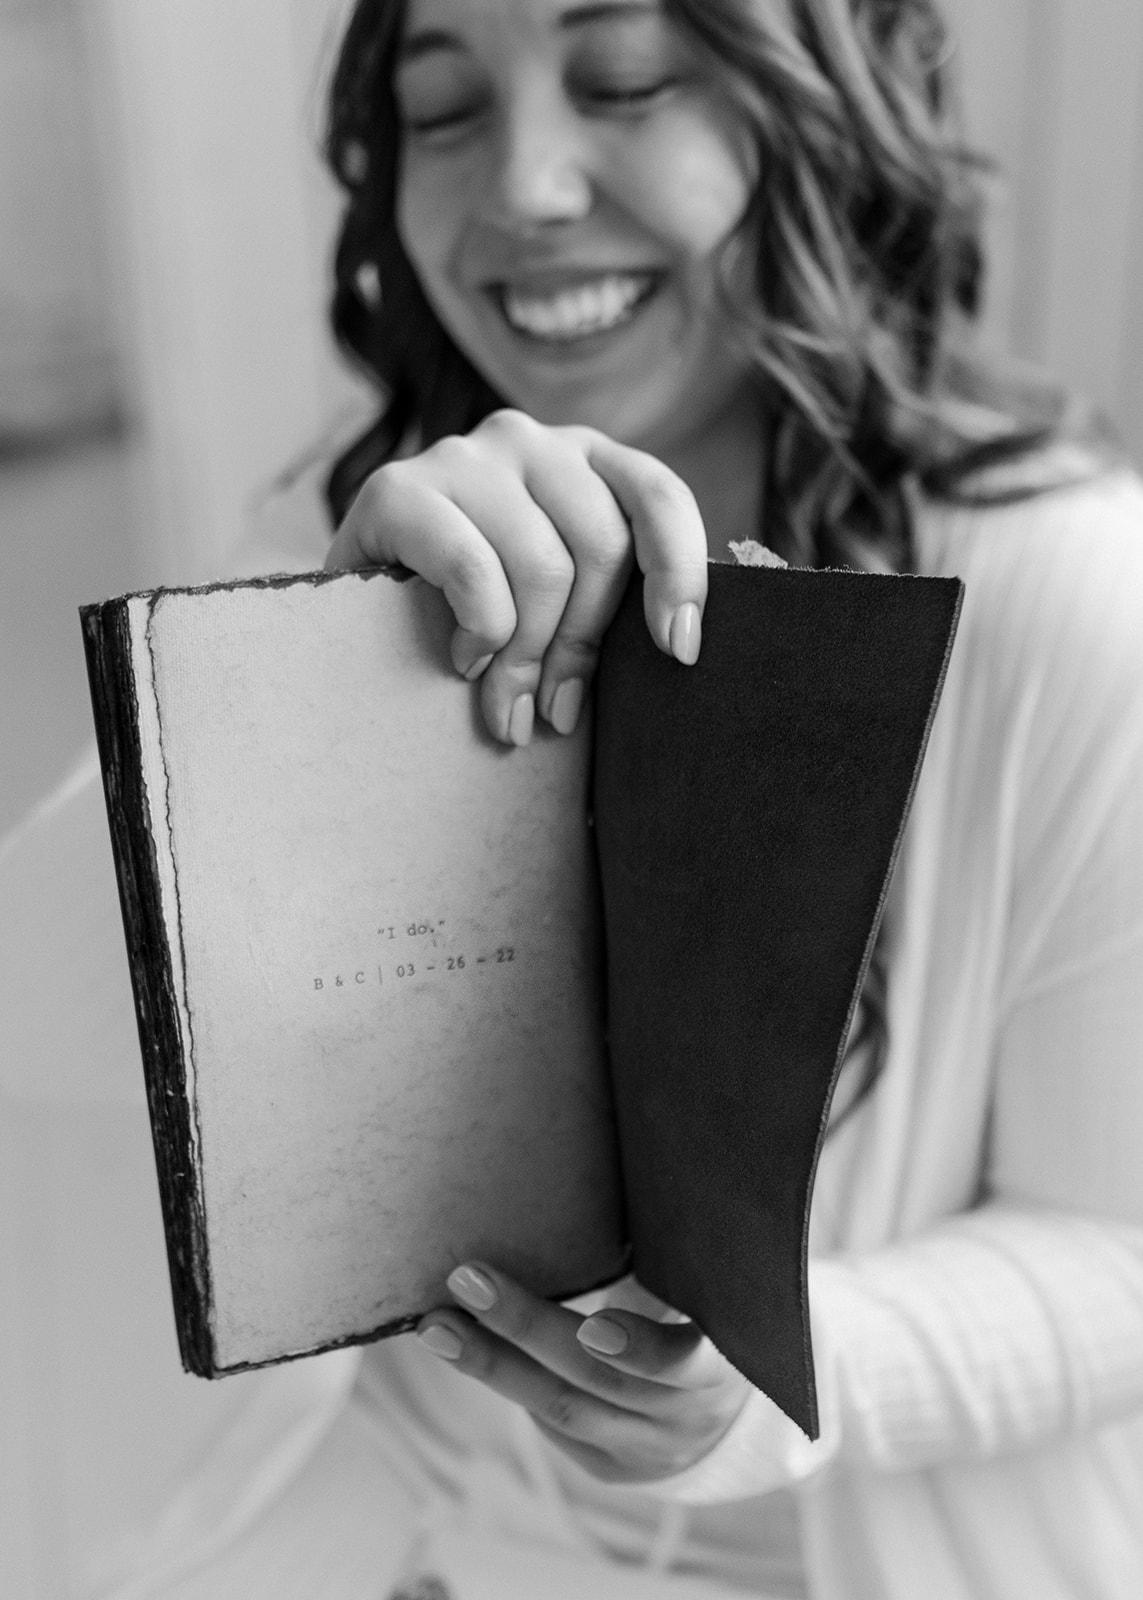 "I do."
B & C | 03 - 26 - 22